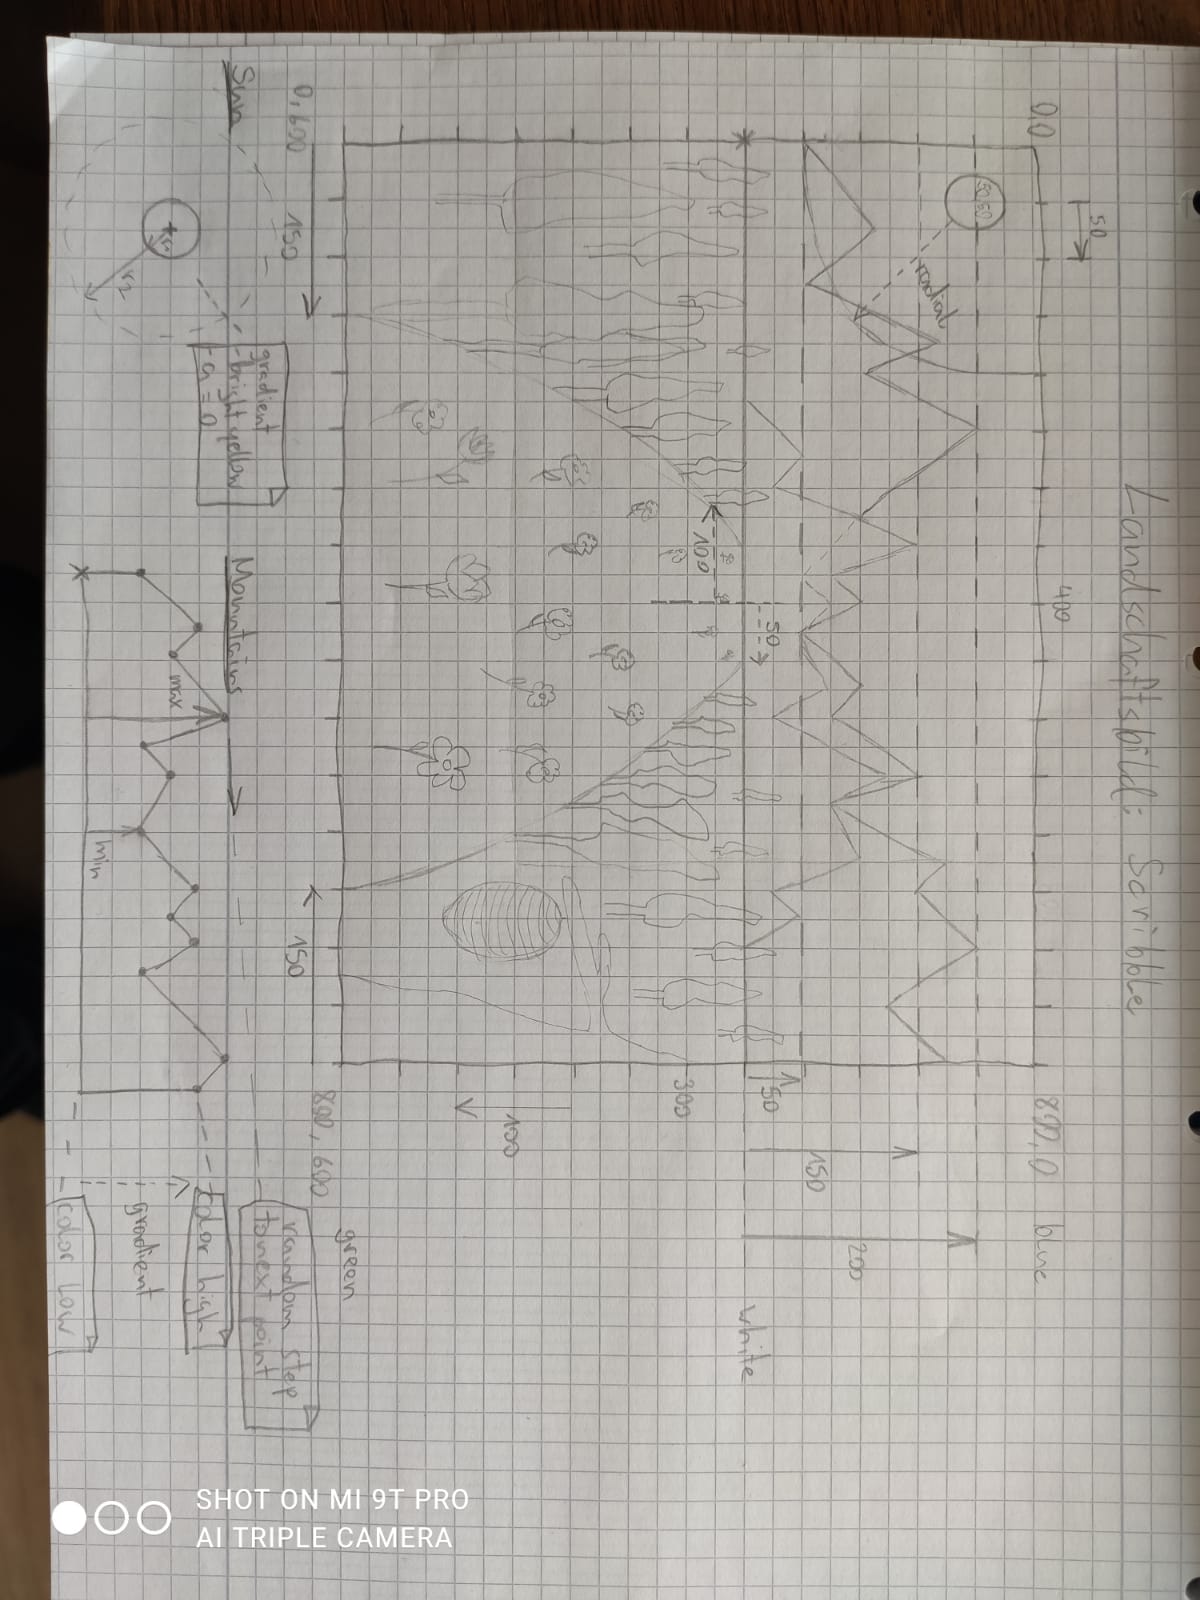 Landschaftsbild: Scribble
400
50
0,0
800,0 blue
50,50
radial
200
150
50
white
50
100
300
100
150
150
0,600
800,600
green
Sun
r1
r2
gradient
- bright yellow
- a = 0
Mountains
max
min
random step
to next point
color high
gradient
color low
SHOT ON MI 9T PRO
AI TRIPLE CAMERA